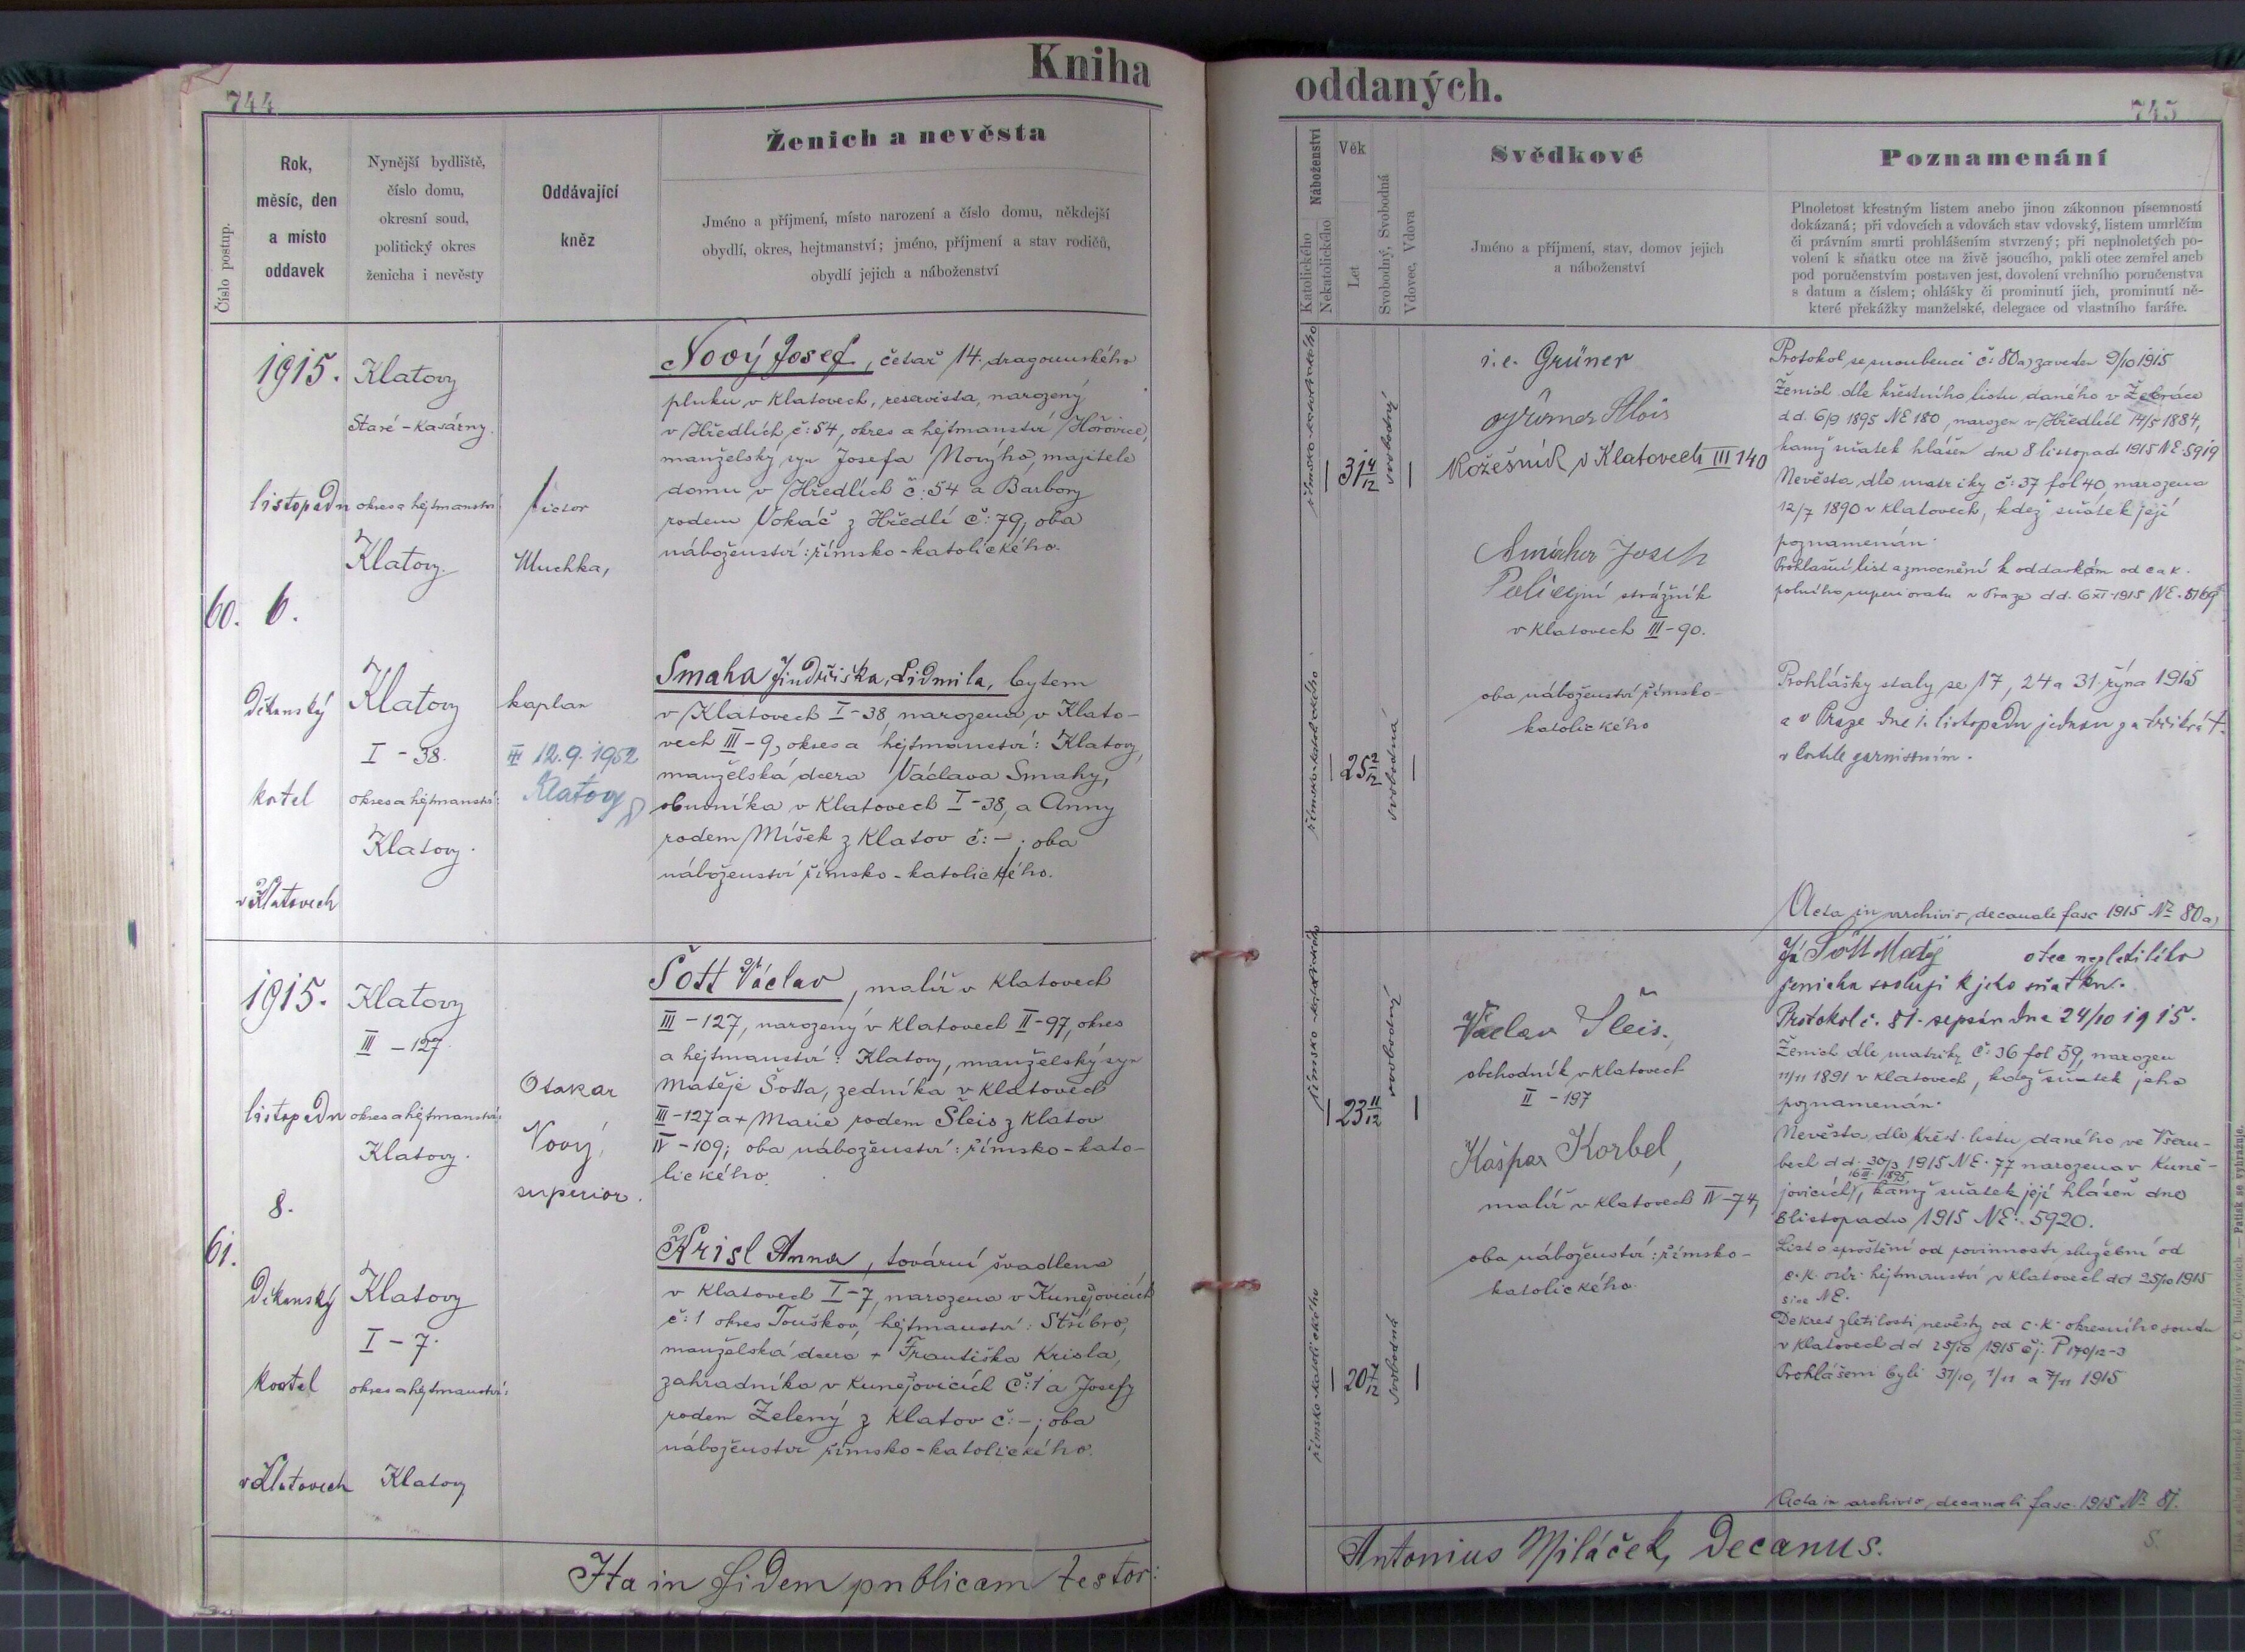 Kniha
oddaných.
744
745
Číslo postup.
Rok,
měsíc, den
a místo
oddavek
Nynější bydliště,
číslo domu,
okresní soud,
politický okres
ženicha i nevěsty
Oddávající
kněz
Ženich a nevěsta
Jméno a příjmení, místo narození a číslo domu, někdejší
obydlí, okres, hejtmanství; jméno, příjmení a stav rodičů,
obydlí jejich a náboženství
Náboženství
Katolického
Nekatolického
Věk
Let
Svobodný, Svobodná
Vdovec, Vdova
Svědkové
Jméno a příjmení, stav, domov jejich
a náboženství
Poznamenání
Plnoletost křestným listem anebo jinou zákonnou písemností
dokázaná; při vdovcích a vdovách stav vdovský, listem umrlčím
či právním smrti prohlášením stvrzený; při neplnoletých po-
volení k sňatku otce na živě jsoucího, pakli otec zemřel aneb
pod poručenstvím postaven jest, dovolení vrchního poručenstva
s datum a číslem; ohlášky či prominutí jich, prominutí ně-
které překážky manželské, delegace od vlastního faráře.
60.
1915.
listopadu
6.
Děkanský
kostel
v Klatovech
Klatovy
Staré-kasárny.
okres a hejtmanství
Klatovy.
Klatovy
I-38.
okres a hejtmanství:
Klatovy.
Victor
Muchka,
kaplan
12.9.1952
Klatovy
Nový Josef, četař 14. dragounského
pluku v Klatovech, reservista, narozený
v Hředlích č: 54, okres a hejtmanství Hořovice,
manželský syn Josefa Nového, majitele
domu v Hředlích č: 54 a Barbory
rodem Vokáč z Hředlí č: 79, oba
náboženství: římsko-katolického.
Smaha Jindřiška, Lidmila, bytem
v Klatovech I-38, narozena v Klato-
vech III-9, okres a hejtmanství: Klatovy,
manželská dcera Václava Smahy,
obuvníka v Klatovech I-38, a Anny
rodem Míšek z Klatov č:-; oba
náboženství římsko-katolického.
římsko-katolického
31 4/12
svobodný
římsko-katolického
25 2/12
svobodná
i.e. Grüner
Grüner Alois
Kožešník v Klatovech III 140
Josef
Policejní strážník
v Klatovech III-90.
oba náboženství římsko-
katolického
Protokol se snoubenci č: 80a) zaveden 9/10 1915
Ženich dle křestního listu daného v Žebráce
dd. 6/9 1895 NE 180, narozen v Hředlích 14/5 1884,
kamž sňatek hlášen dne 8 listopadu 1915 NE. 5919
Nevěsta dle matriky č: 37 fol 40, narozena
12/7 1890 v Klatovech, kdež sňatek její
poznamenán.
Prohlašní list a zmocnění k oddavkám od c a k.
polního superiorátu v Praze dd. 6 XI 1915 NE. 5169
Prohlášky staly se 17, 24 a 31. října 1915
a v Praze dne 1. listopadu jednou za třikrát
v kostele garnisoním.
Acta in archivio decanali fasc 1915 No 80a)
61.
1915.
listopadu
8.
Děkanský
kostel
v Klatovech
Klatovy
III-127.
okres a hejtmanství:
Klatovy.
Klatovy
I-7.
okres a hejtmanství:
Klatovy
Otakar
Nový,
superior.
Šott Václav, malíř v Klatovech
III-127, narozený v Klatovech II-97, okres
a hejtmanství: Klatovy, manželský syn
Matěje Šotta, zedníka v Klatovech
III-127 a + Marie rodem Šleis z Klatov
IV-109; oba náboženství: římsko-kato-
lického.
Krisl Anna, tovární švadlena
v Klatovech I-7, narozena v Kunějovicích
č: 1 okres Touškov, hejtmanství: Stříbro,
manželská dcera + Františka Krisla,
zahradníka v Kunějovicích č: 1 a Josefy
rodem Zelený z Klatov č:-; oba
náboženství římsko-katolického.
římsko-katolického
23 11/12
svobodný
římsko-katolického
20 7/12
svobodná
Václav Šleis.
obchodník v Klatovech
II-197
Kašpar Korbel,
malíř v Klatovech IV-74,
oba náboženství: římsko-
katolického.
Já Šott Matěj otec nezletilého
ženicha svoluji k jeho sňatku.
Protokol č. 81. sepsán dne 24/10 1915.
Ženich dle matriky č: 36 fol 59, narozen
11/11 1891 v Klatovech, kdež sňatek jeho
poznamenán.
Nevěsta dle křest. listu daného ve Všeru-
bech dd. 30/3 1915 NE. 77 narozena v Kuně-
16 III. 1895
jovicích, kamž sňatek její hlášen dne
8 listopadu 1915 NE: 5920.
List o sproštění od povinnosti služební od
c.k. okr. hejtmanství v Klatovech dd 25/10 1915
sine NE.
Dekret zletilosti nevěsty od c.k. okresního soudu
v Klatovech dd 25/10 1915 čj. P 170/12-3
Prohlášeni byli 31/10, 1/11 a 7/11 1915
Acta in archivio decanali fasc. 1915 No 81.
Ita in fidem publicam testor:
Antonius Miláček, Decanus.